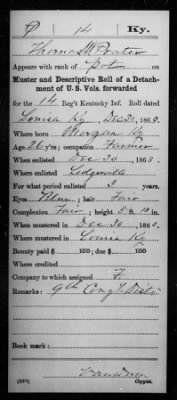 P | 14 | Ky.
Thomas M Prater
Appears with rank of Pvt on
Muster and Descriptive Roll of a Detach-
ment of U. S. Vols. forwarded
for the 14 Reg't Kentucky Inf. Roll dated
Louisa Ky Dec 31, 1863.
Where born Morgan Ky
Age 26 y'rs; occupation Farmer
When enlisted Dec 30, 1863.
Where enlisted
For what period enlisted 3 years.
Eyes Blue; hair Fair
Complexion Fair; height 5 ft. 10 in.
When mustered in Dec 30, 1863.
Where mustered in Louisa Ky
Bounty paid $ 100; due $ 100
Where credited
Company to which assigned F
Remarks: 9th Cong'l Dist.
Book mark:
Copyist.